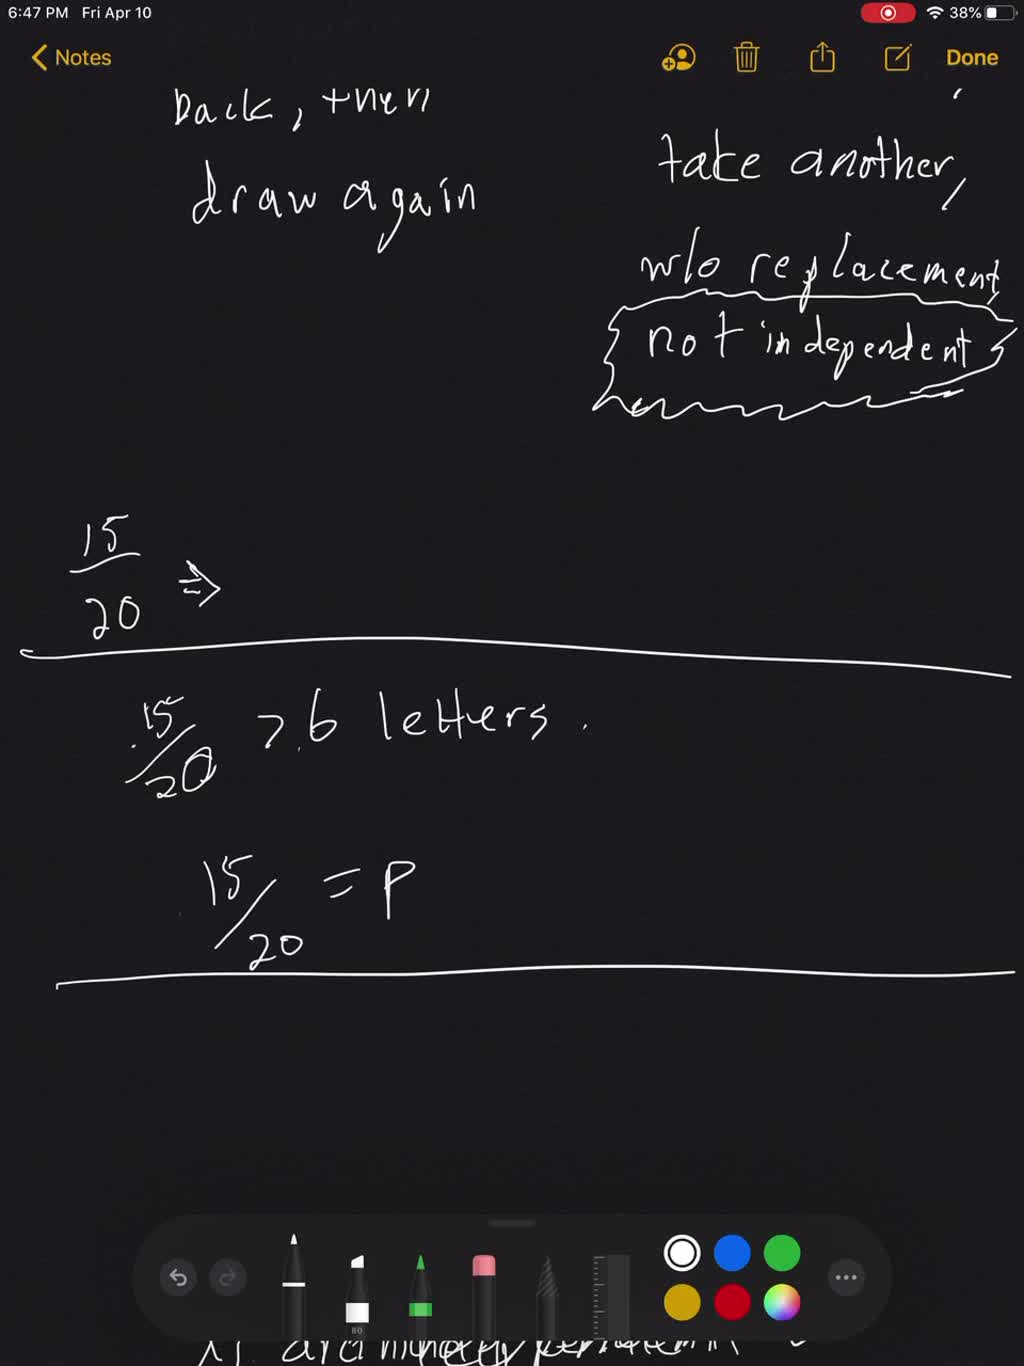 6:47 PM Fri Apr 10
38%
Notes
Done
back, then
draw again
take another,
w/o replacement
not independent
15
20 ⇒
15/20 > 6 letters.
15/20 = P
80